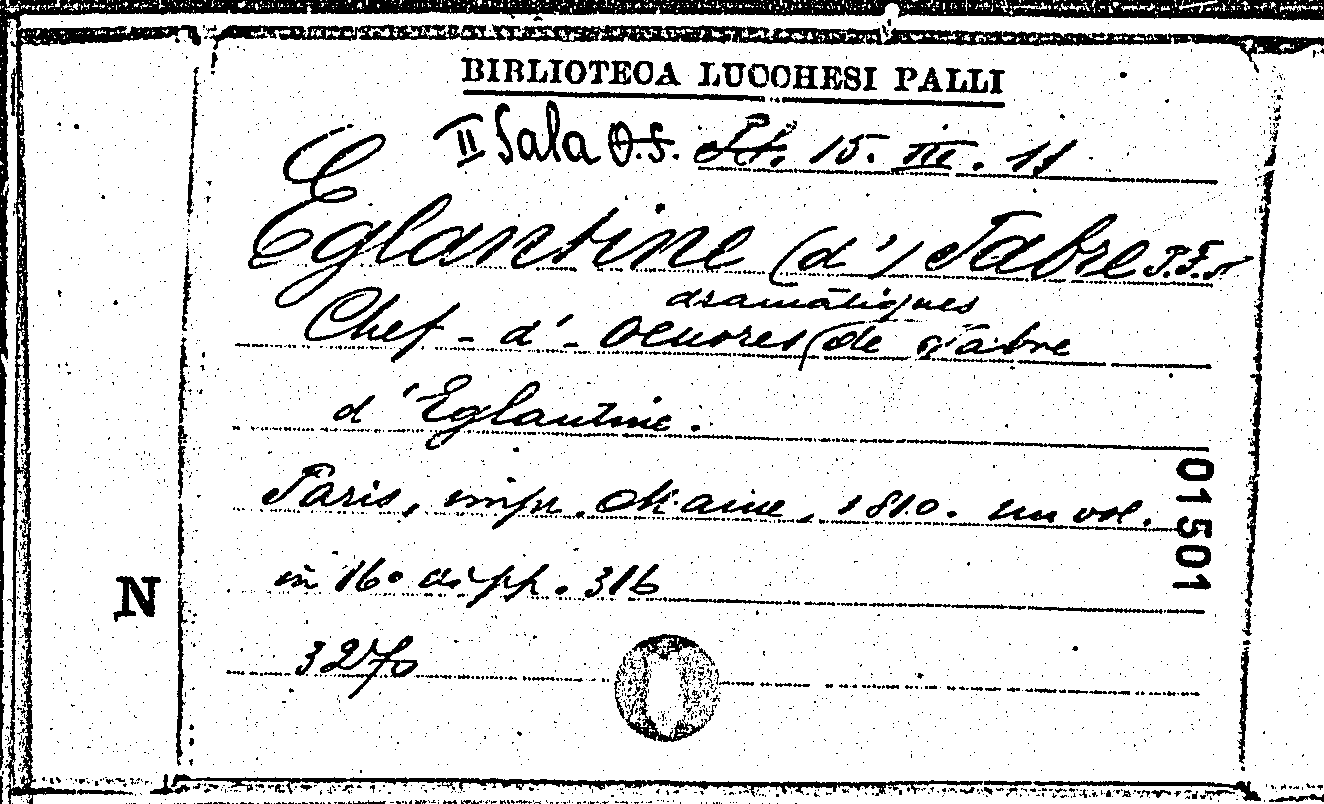 BIBLIOTECA LUCCHESI PALLI
II Sala O.S. 15. III. 11
Eglantine (d') Fabre
dramatiques
Chef-d'-Oeuvres (de Fabre
d'Eglantine.
Paris, impr. Maine, 1810. un vol.
in 16° di pp. 316
01501
N